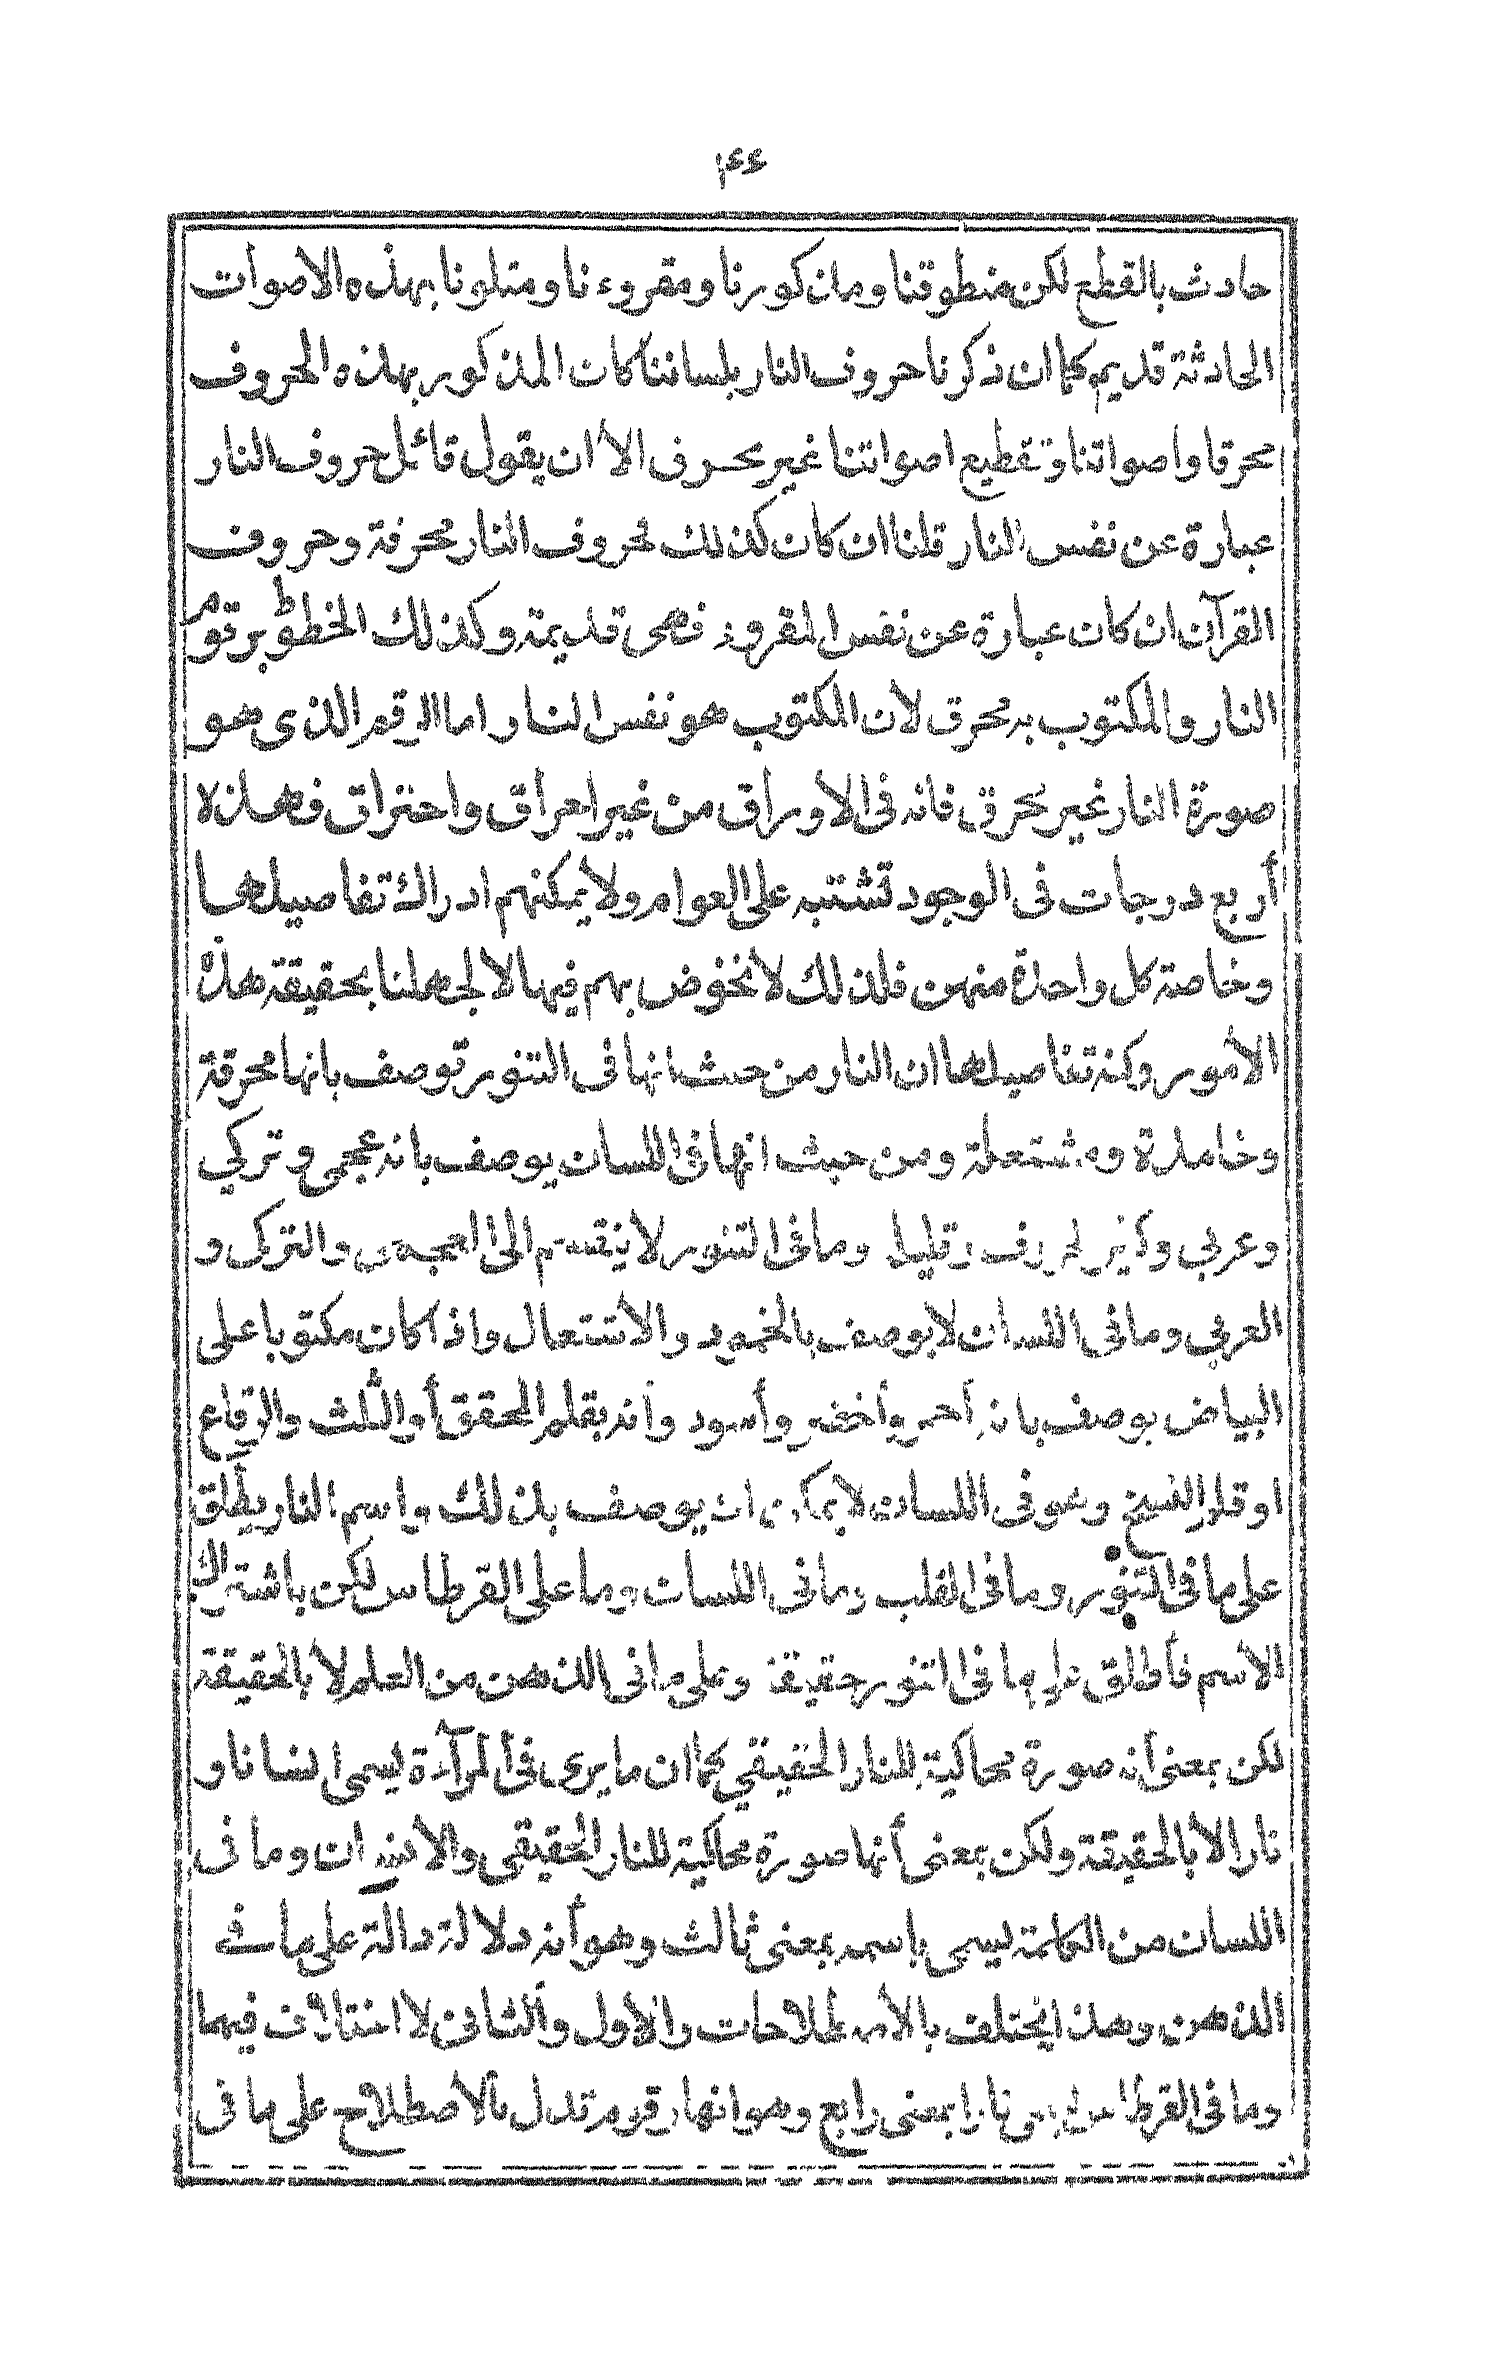 ۴۴
حادث بالقطع لكن منطوقنا ومذكورنا ومقروءنا ومتلونا بهذه الاصوات
الحادثة قديم كما ان ذكرنا حروف النار بلساننا كان المذكور بهذه الحروف
محرقا واصواتنا وتقطيع اصواتنا غير محرف الا ان يقول قائل حروف النار
عبارة عن نفس النار قلنا ان كان كذلك فحروف النار محرقة وحروف
القرآن ان كان عبارة عن نفس المقروء فهى قديمة وكذلك الخطوط برقوم
النار والمكتوب به محرق لان المكتوب هو نفس النار واما الرقم الذى هو
صورة النار غير محرق فانه فى الأوراق من غير احراق واحتراق فهذه
أربع درجات فى الوجود تشتبه على العوام ولا يمكنهم ادراك تفاصيلها
وخاصة كل واحدة منهن فلذلك لا نخوض بهم فيها لا لجهلنا بحقيقة هذه
الأمور وكنه تفاصيلها ان النار من حيث انها فى التنور توصف بانها محرقة
وخامدة ومشتعلة ومن حيث انها فى اللسان يوصف بانه عجمى وتركي
وعربي وكثير الحروف وقليل وما فى التنور لا ينقسم الى العجمى والتركى و
العربي وما فى اللسان لا يوصف بالخمود والأشتعال واذا كان مكتوبا على
البياض يوصف بانه أحمر وأخضر وأسود وأنه بقلم المحقق أو الثلث والرقاع
او قلم النسخ وهو فى اللسان لا يمكن ان يوصف بذلك واسم النار يطلق
على ما فى التنور وما فى القلب وما فى اللسان وما على القرطاس لكن باشتراك
الأسم فأطلق على ما فى التنور حقيقة وعلى ما فى الذهن من العلم لا بالحقيقة
لكن بمعنى أنه صورة محاكية للنار الحقيقي كما ان ما يرى فى المرآءة يسمى انسانا و
نارا لا بالحقيقة ولكن بمعنى أنها صورة محاكية للنار الحقيقى والانسان وما فى
اللسان من الكلمة يسمى باسمه بمعنى ثالث وهو أنه دلالة دالة على ما فى
الذهن وهذا يختلف بالأصطلاحات والأول والثانى لا اختلاف فيهما
وما فى القرطاس يسمى نارا بمعنى رابع وهو انها رقوم تدل بالأصطلاح على ما فى